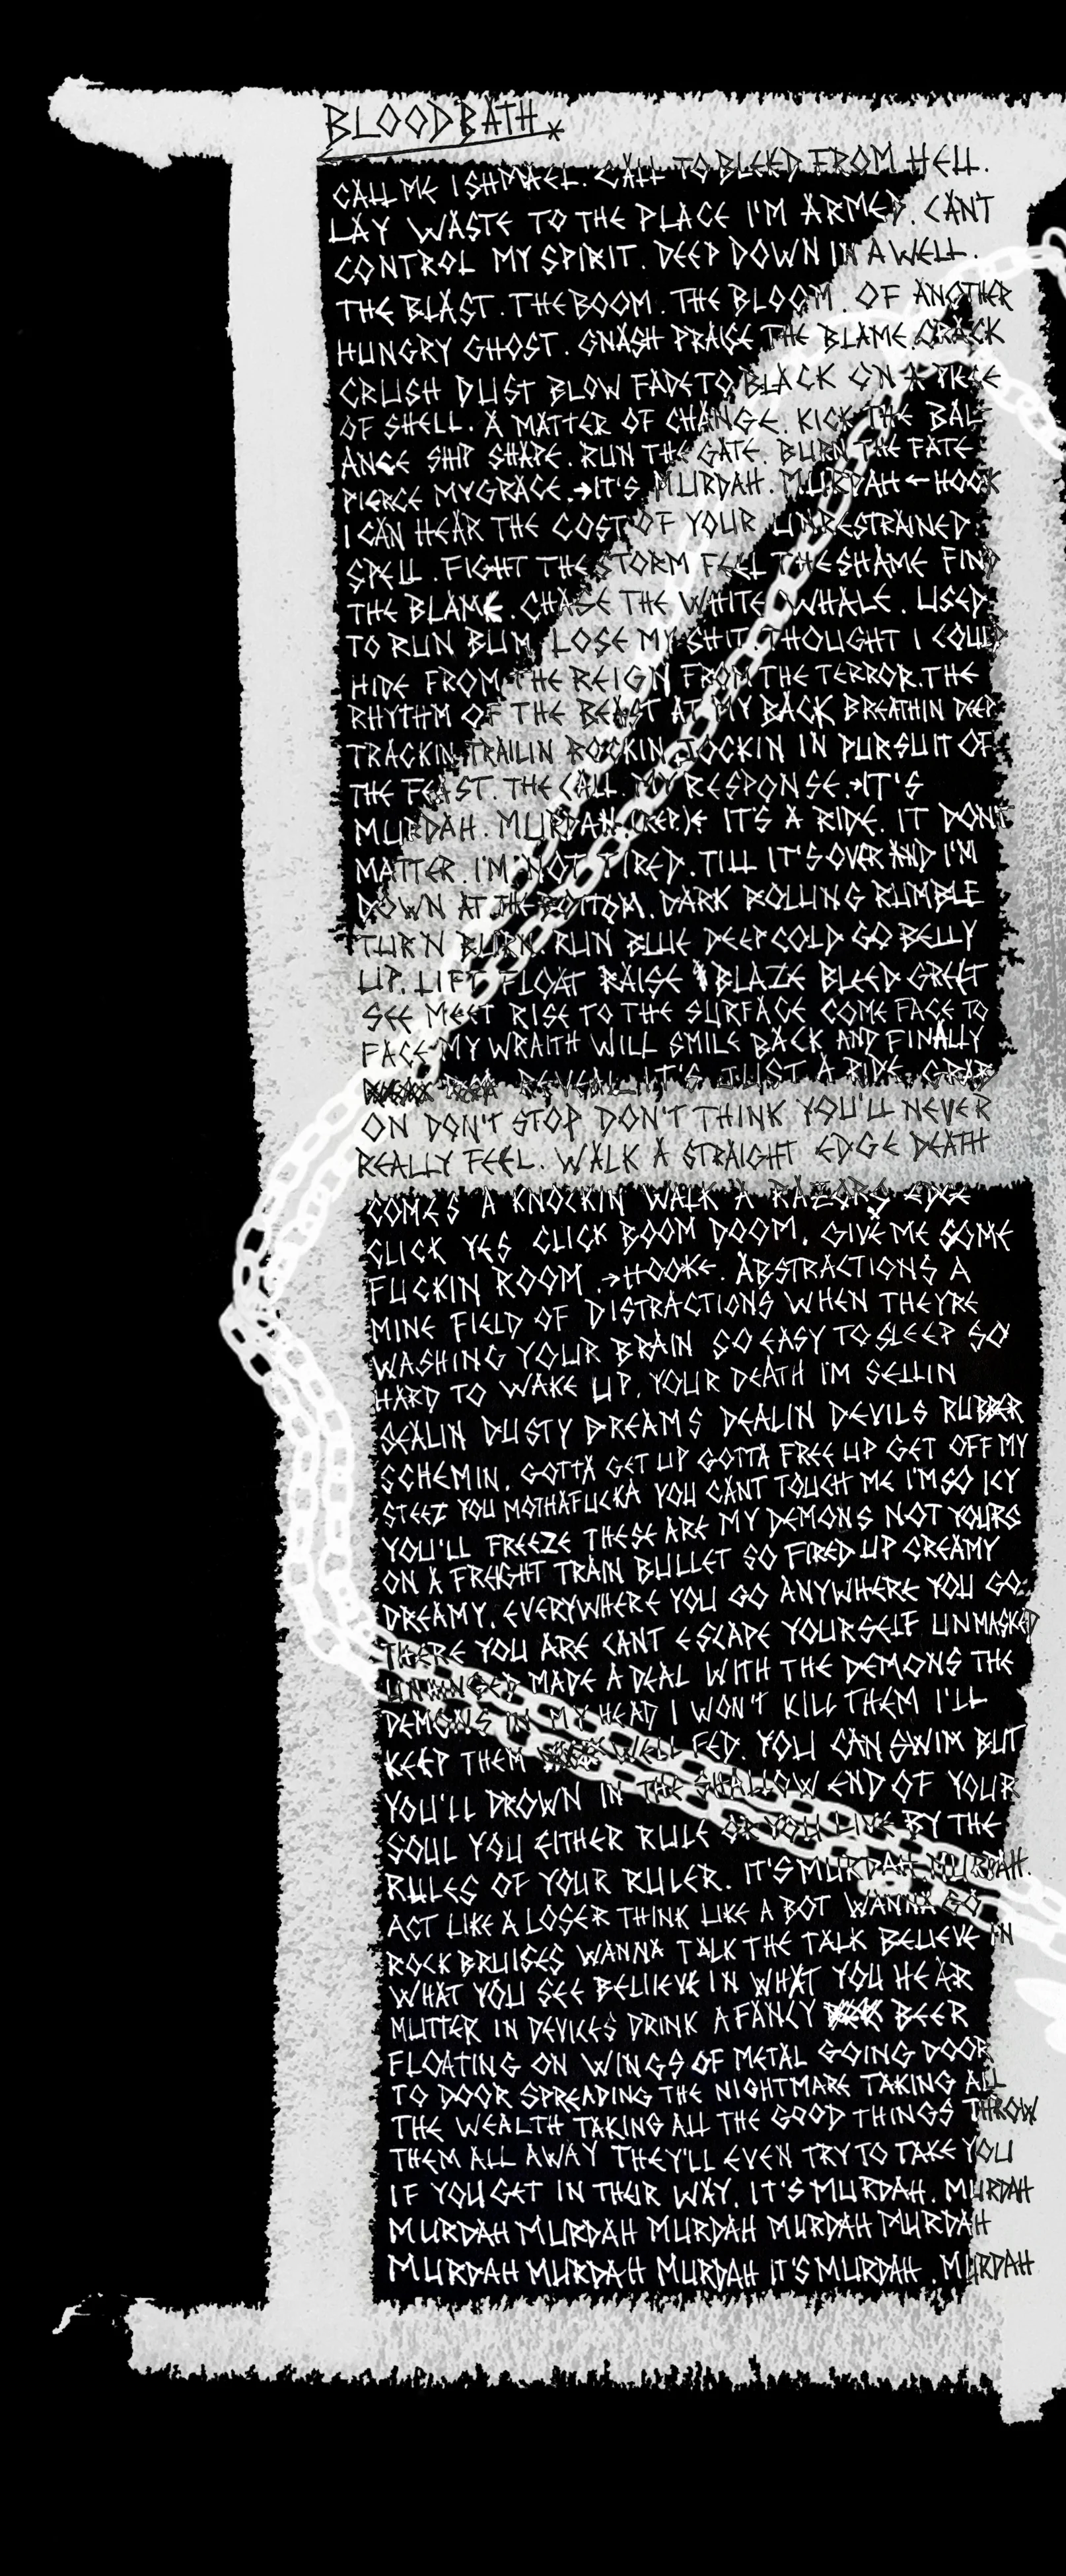 BLOODBATH*
CALL ME ISHMAEL. CALL TO BLEED FROM HELL.
LAY WASTE TO THE PLACE I'M ARMED. CANT
CONTROL MY SPIRIT. DEEP DOWN IN A WELL.
THE BLAST. THE BOOM. THE BLOOM. OF ANOTHER
HUNGRY GHOST. GNASH PRAISE THE BLAME. CRACK
CRUSH DUST BLOW FADE TO BLACK ON A PIECE
OF SHELL. A MATTER OF CHANGE. KICK THE BAL-
ANCE SHIP SHAPE. RUN THE GATE. BURN THE FATE
PIERCE MY GRACE. →IT'S MURDAH. MURDAH ← HOOK
I CAN HEAR THE COST OF YOUR UNRESTRAINED
SPELL. FIGHT THE STORM FEEL THE SHAME FIND
THE BLAME. CHASE THE WHITE WHALE. USED
TO RUN BUM LOSE MY SHIT THOUGHT I COULD
HIDE FROM THE REIGN FROM THE TERROR. THE
RHYTHM OF THE BEAST AT MY BACK BREATHIN DEEP
TRACKIN TRAILIN ROCKIN JOCKIN IN PURSUIT OF
THE FEAST. THE CALL. MY RESPONSE. →IT'S
MURDAH. MURDAH. (REP.)← IT'S A RIDE. IT DON'T
MATTER. I'M NOT TIRED. TILL IT'S OVER AND I'M
DOWN AT THE BOTTOM. DARK ROLLING RUMBLE
TURN BURN. RUN BLUE DEEP COLD GO BELLY
UP. LIFT FLOAT RAISE BLAZE BLEED GREET
SEE MEET RISE TO THE SURFACE COME FACE TO
FACE MY WRAITH WILL SMILE BACK AND FINALLY
REVEAL. IT'S JUST A RIDE. GRAB
ON DON'T STOP DON'T THINK YOU'LL NEVER
REALLY FEEL. WALK A STRAIGHT EDGE DEATH
COMES A KNOCKIN WALK A RAZORS EDGE
CLICK YES CLICK BOOM DOOM. GIVE ME SOME
FUCKIN ROOM. →HOOK←. ABSTRACTIONS A
MINE FIELD OF DISTRACTIONS WHEN THEYRE
WASHING YOUR BRAIN SO EASY TO SLEEP SO
HARD TO WAKE UP. YOUR DEATH I'M SELLIN
SEALIN DUSTY DREAMS DEALIN DEVILS RUBBER
SCHEMIN. GOTTA GET UP GOTTA FREE UP GET OFF MY
STEEZ YOU MOTHAFUCKA YOU CANT TOUCH ME I'M SO ICY
YOU'LL FREEZE THESE ARE MY DEMONS NOT YOURS
ON A FREIGHT TRAIN BULLET SO FIRED UP CREAMY
DREAMY. EVERYWHERE YOU GO ANYWHERE YOU GO.
THERE YOU ARE CANT ESCAPE YOURSELF UNMASKED
MADE A DEAL WITH THE DEMONS THE
DEMONS IN MY HEAD I WON'T KILL THEM I'LL
KEEP THEM WELL FED. YOU CAN SWIM BUT
YOU'LL DROWN IN THE SHALLOW END OF YOUR
SOUL YOU EITHER RULE OR YOU LIVE BY THE
RULES OF YOUR RULER. IT'S MURDAH. MURDAH.
ACT LIKE A LOSER THINK LIKE A BOT WANNA GO
ROCK BRUISES WANNA TALK THE TALK BELIEVE IN
WHAT YOU SEE BELIEVE IN WHAT YOU HEAR
MUTTER IN DEVICES DRINK A FANCY BEER
FLOATING ON WINGS OF METAL GOING DOOR
TO DOOR SPREADING THE NIGHTMARE TAKING ALL
THE WEALTH TAKING ALL THE GOOD THINGS THROW
THEM ALL AWAY THEY'LL EVEN TRY TO TAKE YOU
IF YOU GET IN THEIR WAY. IT'S MURDAH. MURDAH
MURDAH MURDAH MURDAH MURDAH MURDAH
MURDAH MURDAH MURDAH IT'S MURDAH. MURDAH